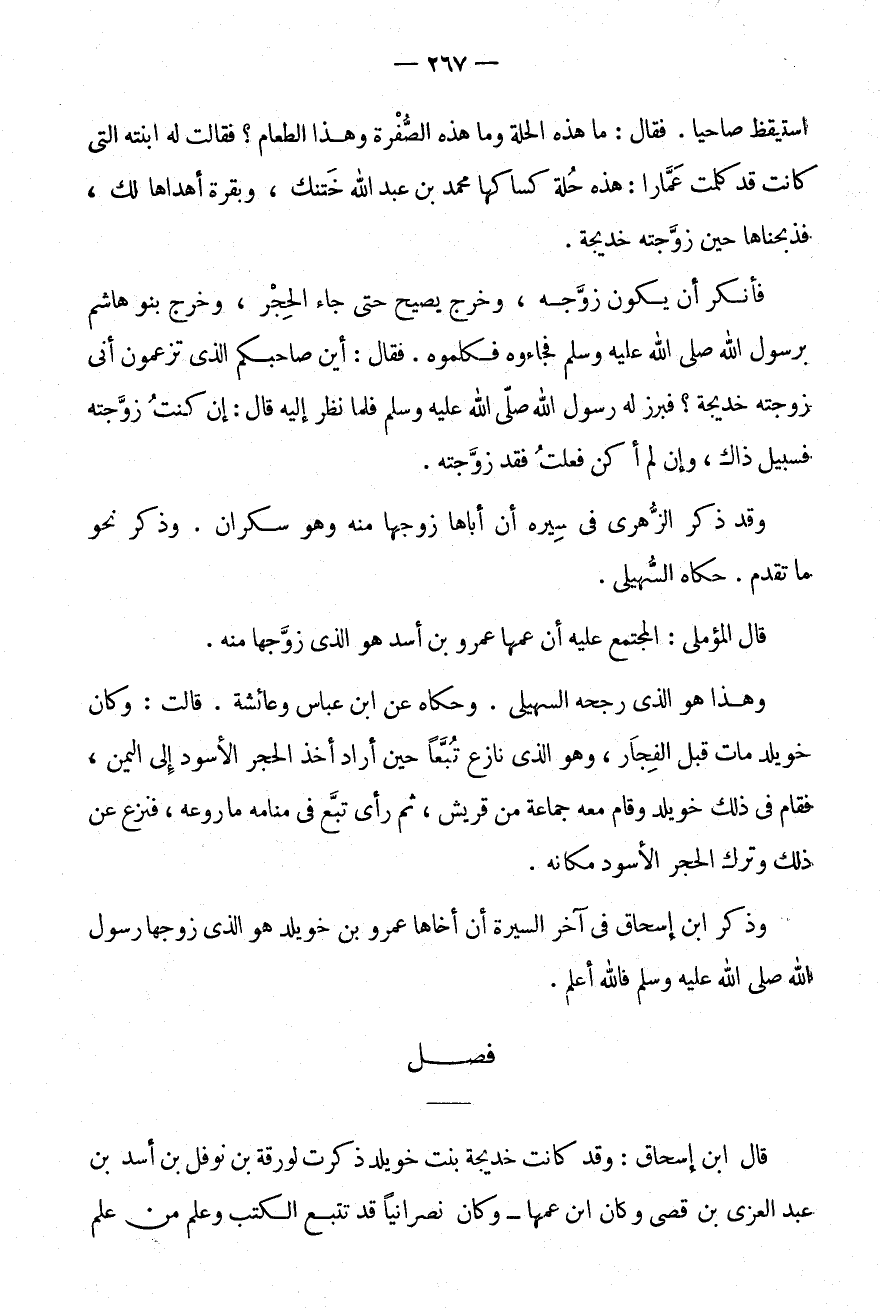 — ٢٦٧ —
استيقظ صاحيا . فقال : ما هذه الحلة وما هذه الصُّفْرة وهذا الطعام ؟ فقالت له ابنته التى
كانت قد كلمت عَمَّارا : هذه حُلة كساكها محمد بن عبد الله خَتنك ، وبقرة أهداها لك ،
فذبحناها حين زوَّجته خديجة .
فأنكر أن يكون زوَّجه ، وخرج يصيح حتى جاء الحِجْر ، وخرج بنو هاشم
برسول الله صلى الله عليه وسلم فجاءوه فكلموه . فقال : أين صاحبكم الذى تزعمون أنى
زوجته خديجة ؟ فبرز له رسول الله صلّى الله عليه وسلم فلما نظر إليه قال : إن كنتُ زوَّجته
فسبيل ذاك ، وإن لم أكن فعلتُ فقد زوَّجته .
وقد ذكر الزُّهرى فى سِيره أن أباها زوجها منه وهو سكران . وذكر نحو
ما تقدم . حكاه السُّهيلى .
قال المؤملى : المجتمع عليه أن عمها عمرو بن أسد هو الذى زوَّجها منه .
وهذا هو الذى رجحه السهيلى . وحكاه عن ابن عباس وعائشة . قالت : وكان
خويلد مات قبل الفِجَار ، وهو الذى نازع تُبَّعاً حين أراد أخذ الحجر الأسود إلى اليمن ،
فقام فى ذلك خويلد وقام معه جماعة من قريش ، ثم رأى تبَّع فى منامه ما روعه ، فنزع عن
ذلك وترك الحجر الأسود مكانه .
وذكر ابن إسحاق فى آخر السيرة أن أخاها عمرو بن خويلد هو الذى زوجها رسول
الله صلى الله عليه وسلم فالله أعلم .
فصل
قال ابن إسحاق : وقد كانت خديجة بنت خويلد ذكرت لورقة بن نوفل بن أسد بن
عبد العزى بن قصى وكان ابن عمها ــ وكان نصرانياً قد تتبع الكتب وعلم من علم